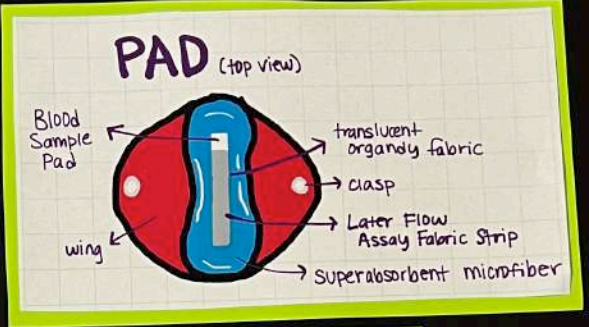 PAD (top view)
Blood
Sample
Pad
translucent
organdy fabric
clasp
Later Flow
Assay Fabric Strip
wing
superabsorbent microfiber